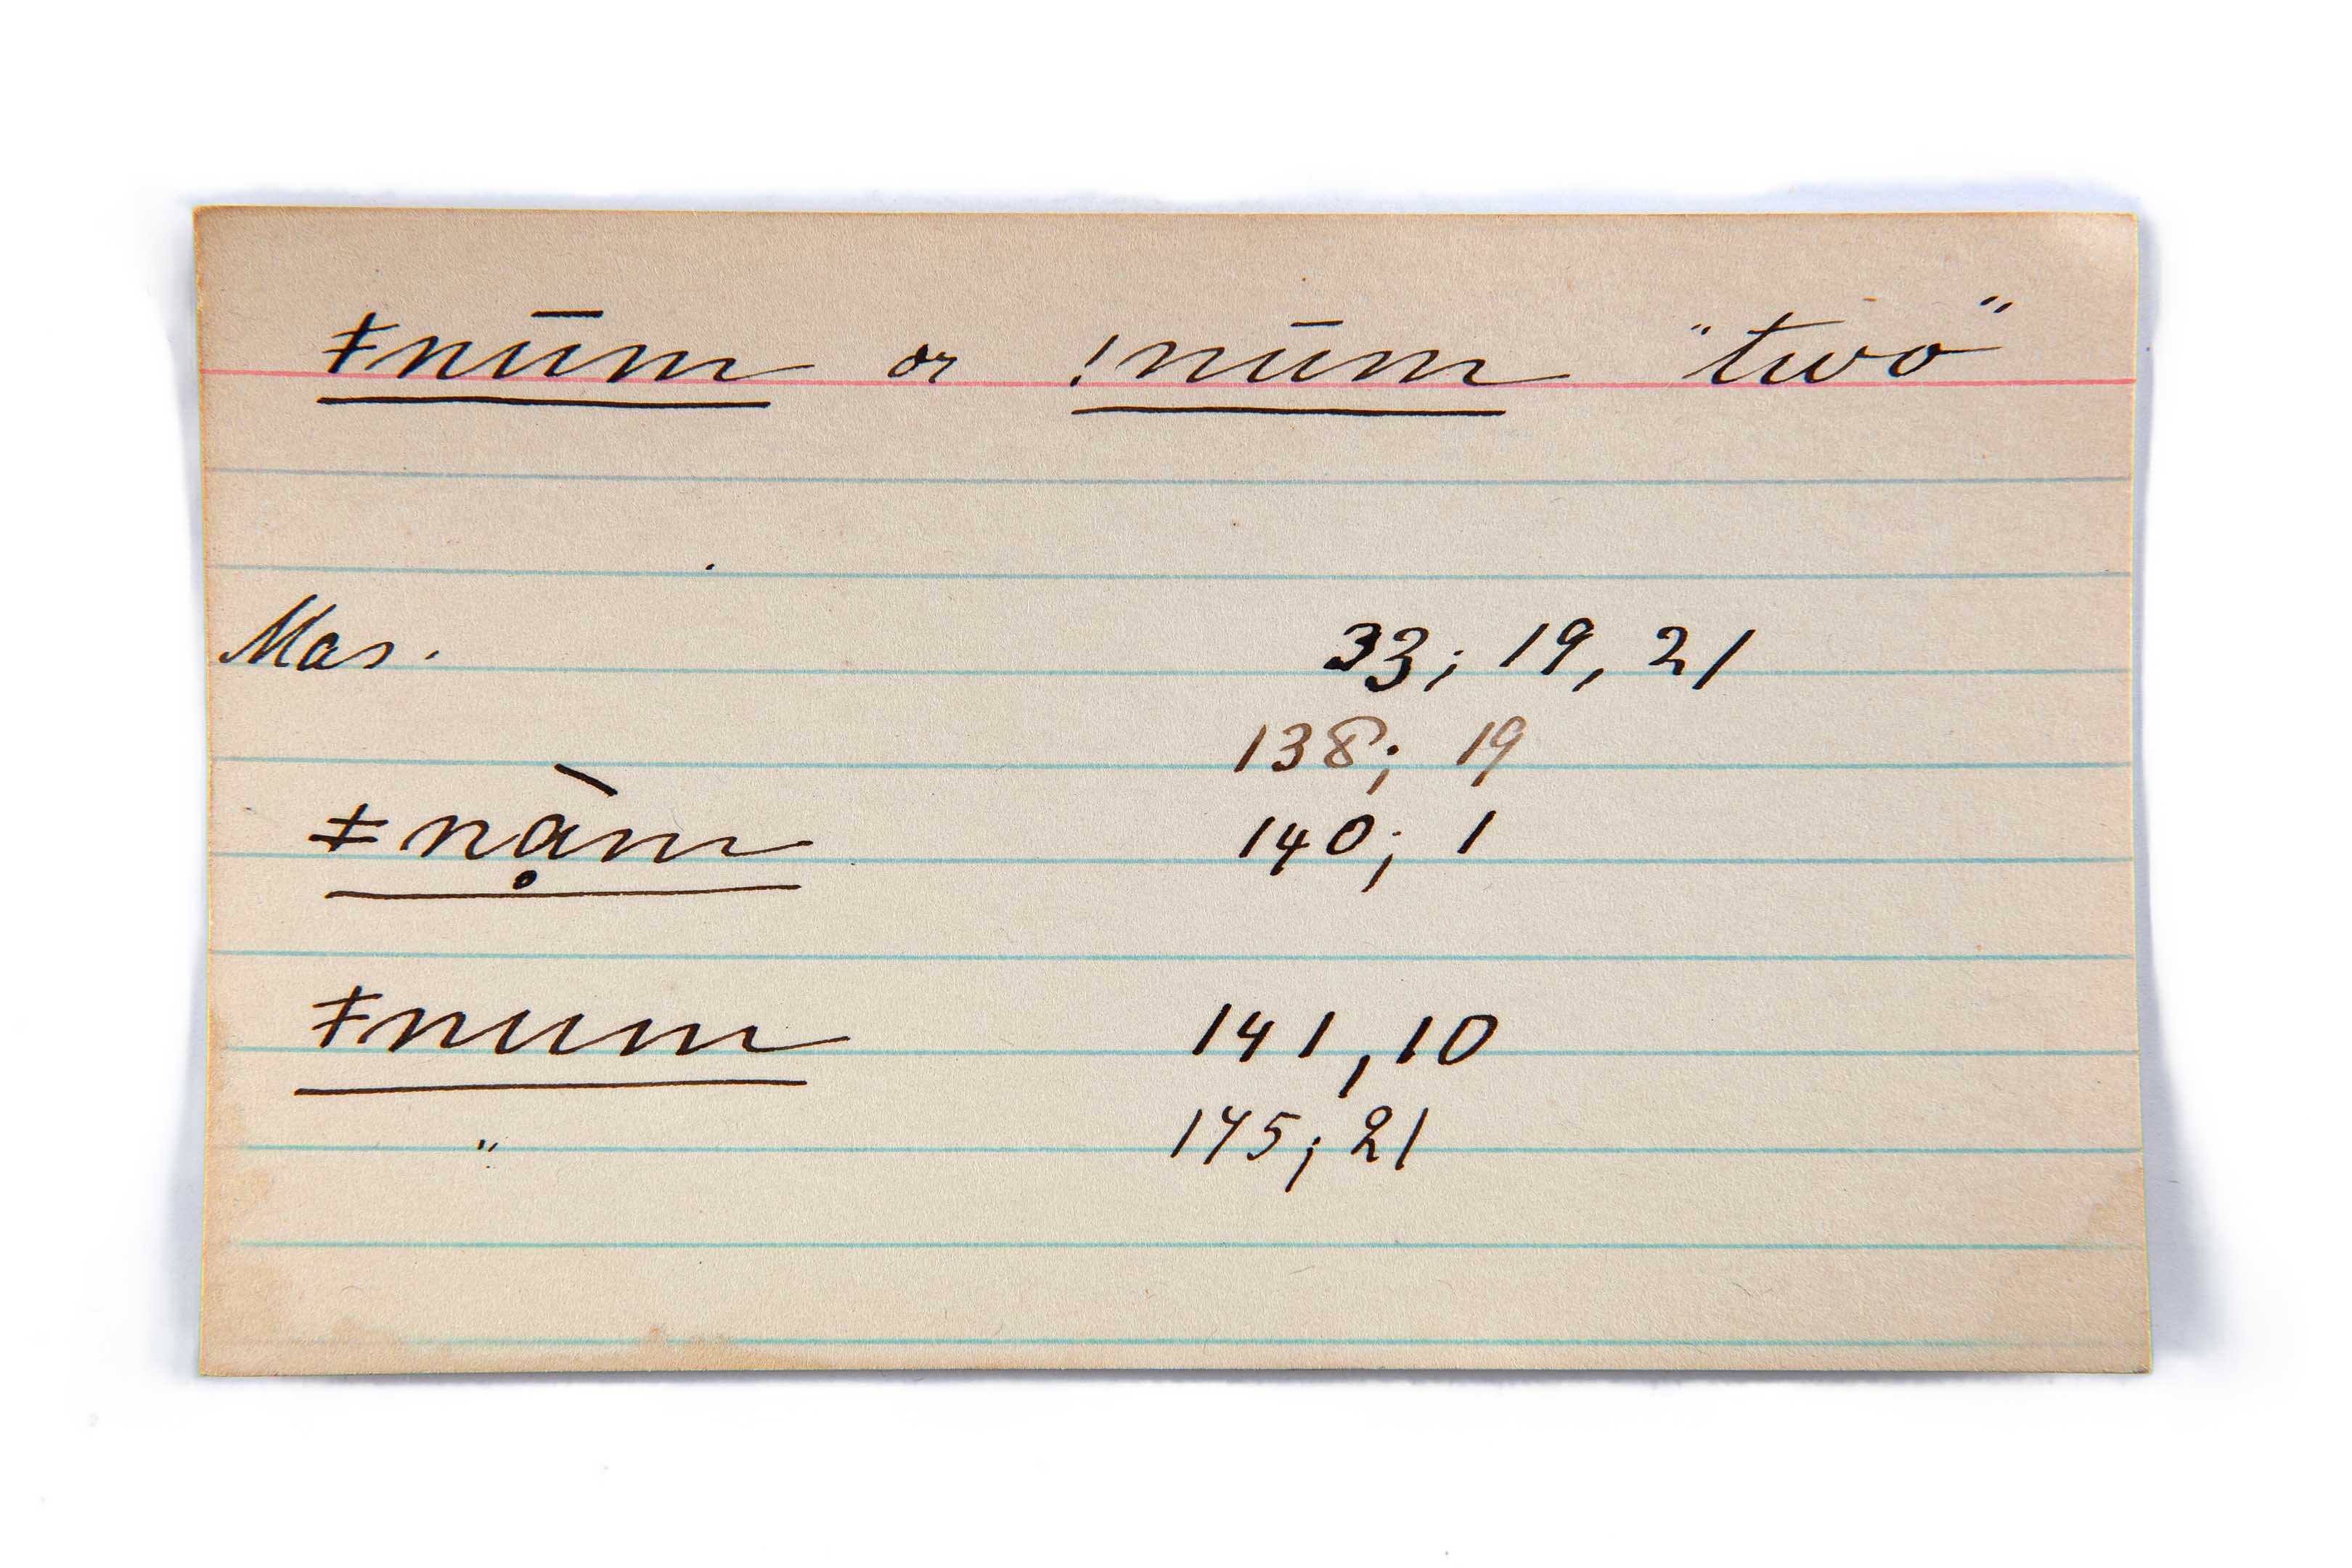 ǂnūm or !nūm "two"
Mas. 33; 19, 21
138; 19
ǂnạ̀m 140; 1
ǂnum 141, 10
" 145; 21